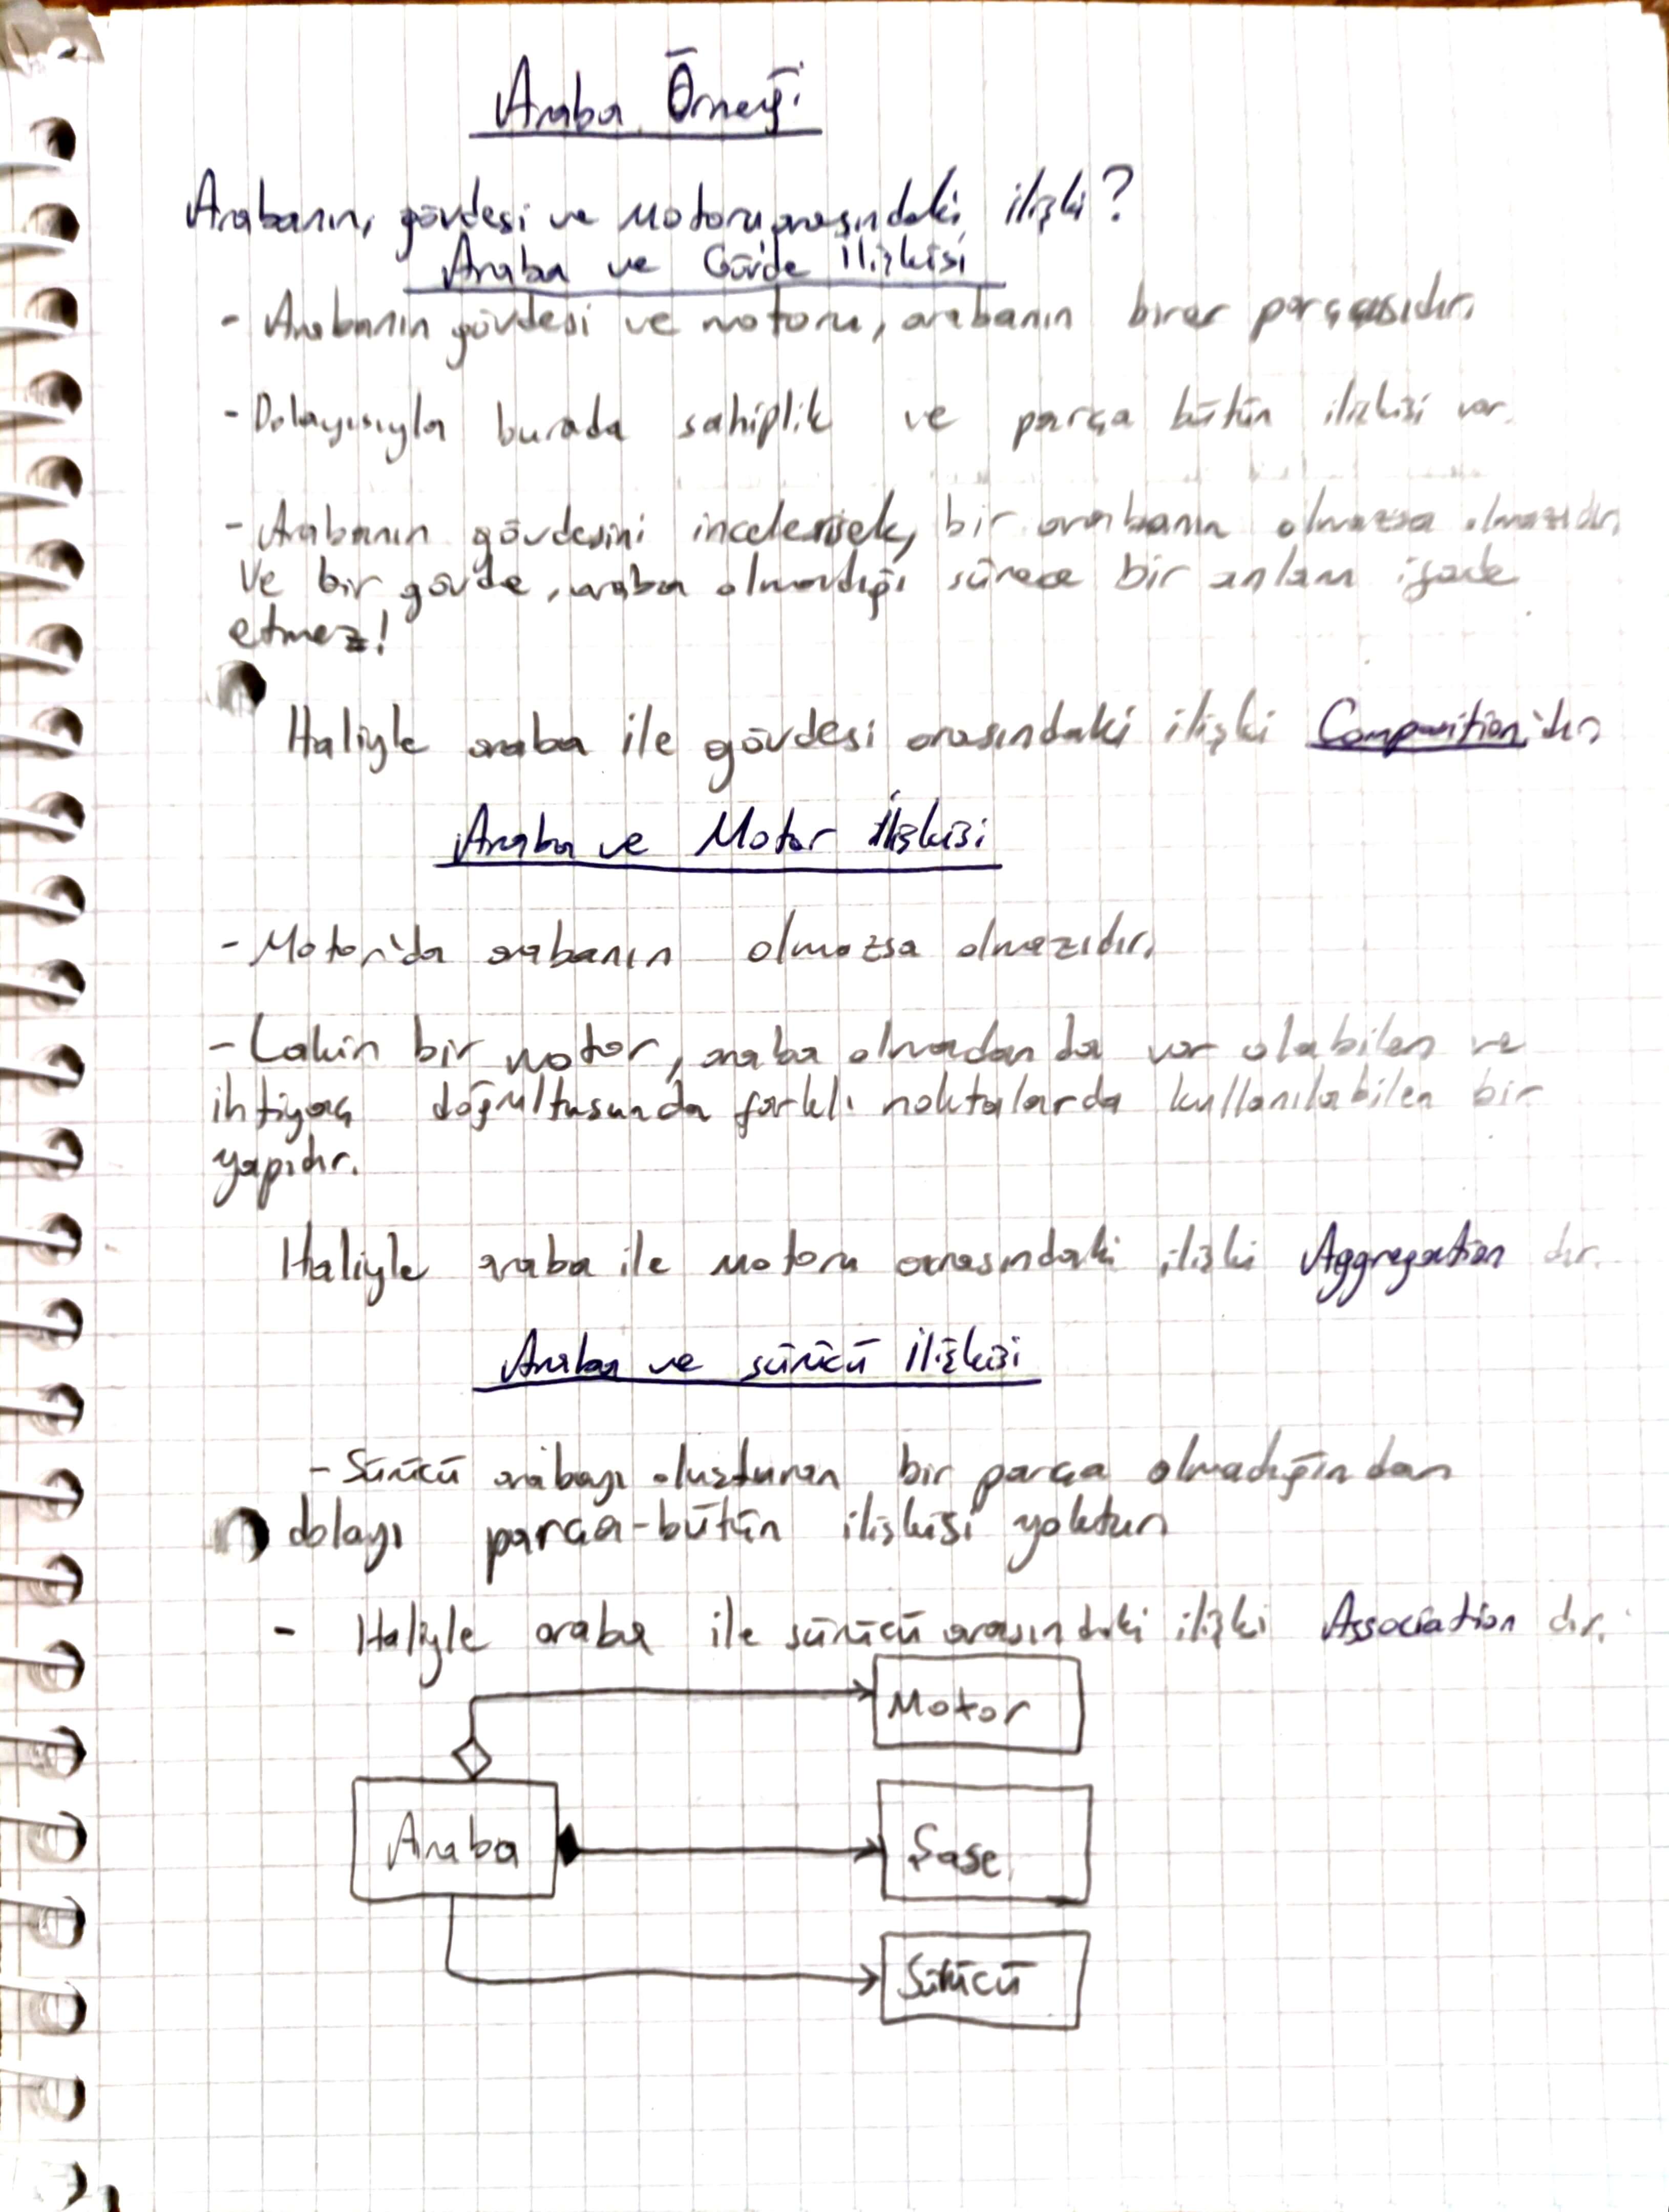 Araba Örneği
Arabanın, gövdesi ve motoru arasındaki ilişki?
Araba ve Gövde İlişkisi
- Arabanın gövdesi ve motoru, arabanın birer parçasıdır.
- Dolayısıyla burada sahiplik ve parça bütün ilişkisi var.
- Arabanın gövdesini incelersek, bir arabanın olmazsa olmazıdır.
Ve bir gövde, araba olmadığı sürece bir anlam ifade
etmez!
Haliyle araba ile gövdesi arasındaki ilişki Composition'dır
Araba ve Motor İlişkisi
- Motor'da arabanın olmazsa olmazıdır.
- Lakin bir motor, araba olmadan da var olabilen ve
ihtiyaç doğrultusunda farklı noktalarda kullanılabilen bir
yapıdır.
Haliyle araba ile motoru arasındaki ilişki Aggregation dır.
Araba ve sürücü İlişkisi
- Sürücü arabayı oluşturan bir parça olmadığından
dolayı parça-bütün ilişkisi yoktur
- Haliyle araba ile sürücü arasındaki ilişki Association dır.
Motor
Araba
Şase
Sürücü